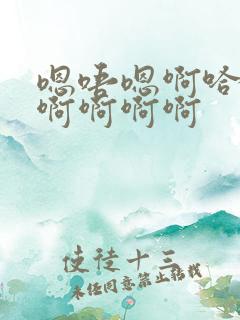 嗯唔嗯啊哈
啊啊啊啊
使徒十三
未经同意禁止转载